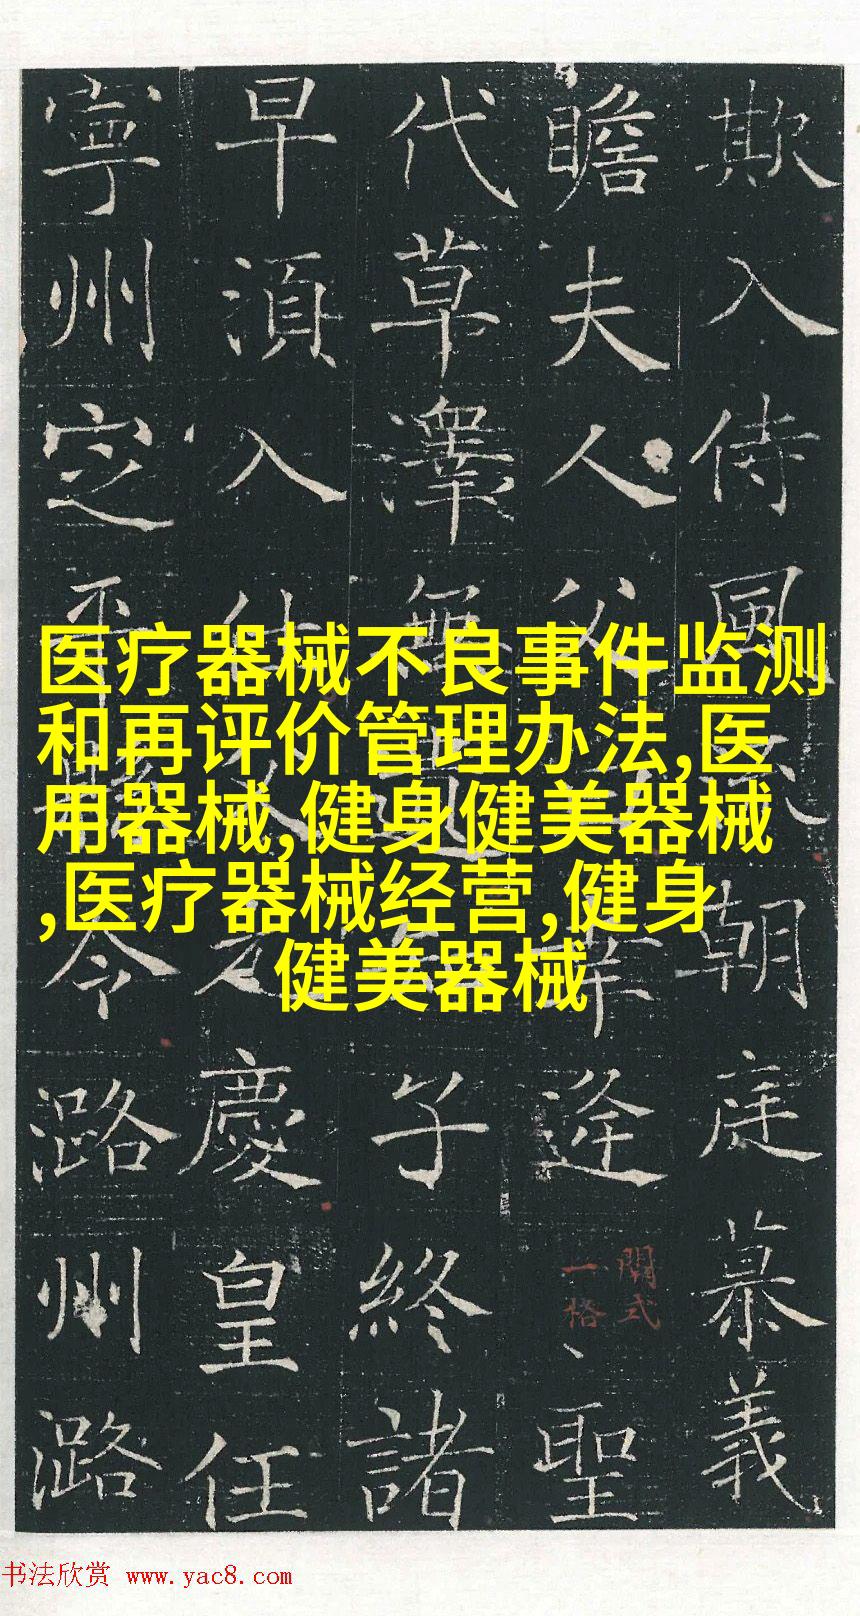 欺入侍風朝庭慕義
瞻夫人父逄聖
闕式
一格
代草澤無遺子終諸
早湏入仕慶皇任
寧州定平令潞州潞
医疗器械不良事件监测
和再评价管理办法,医
用器械,健身健美器械
,医疗器械经营,健身
健美器械
书法欣赏 www.yac8.com